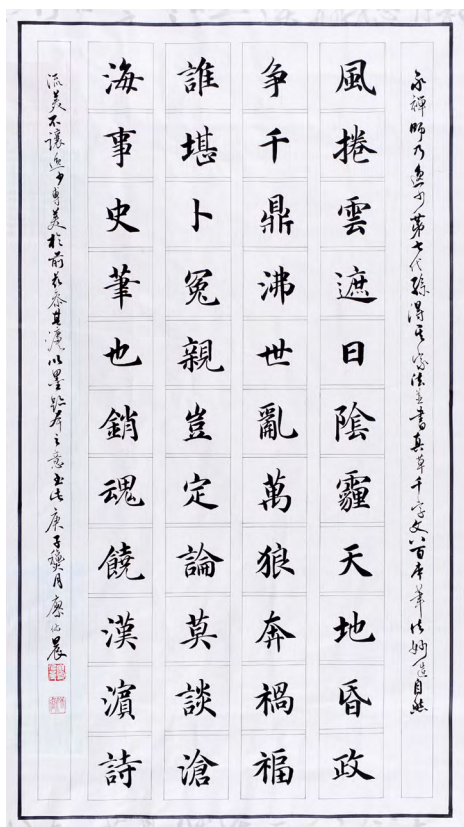 永禪師乃逸少第七代孫得其家法並書真草千字文八百本筆法妙造自然
風捲雲遮日陰霾天地昏政
争千鼎沸世亂萬狼奔禍福
誰堪卜冤親豈定論莫談滄
海事史筆也銷魂饒漢濵詩
派美不讓逸少專美於前茲參其灋以墨跡本之意書此庚子月廖晨